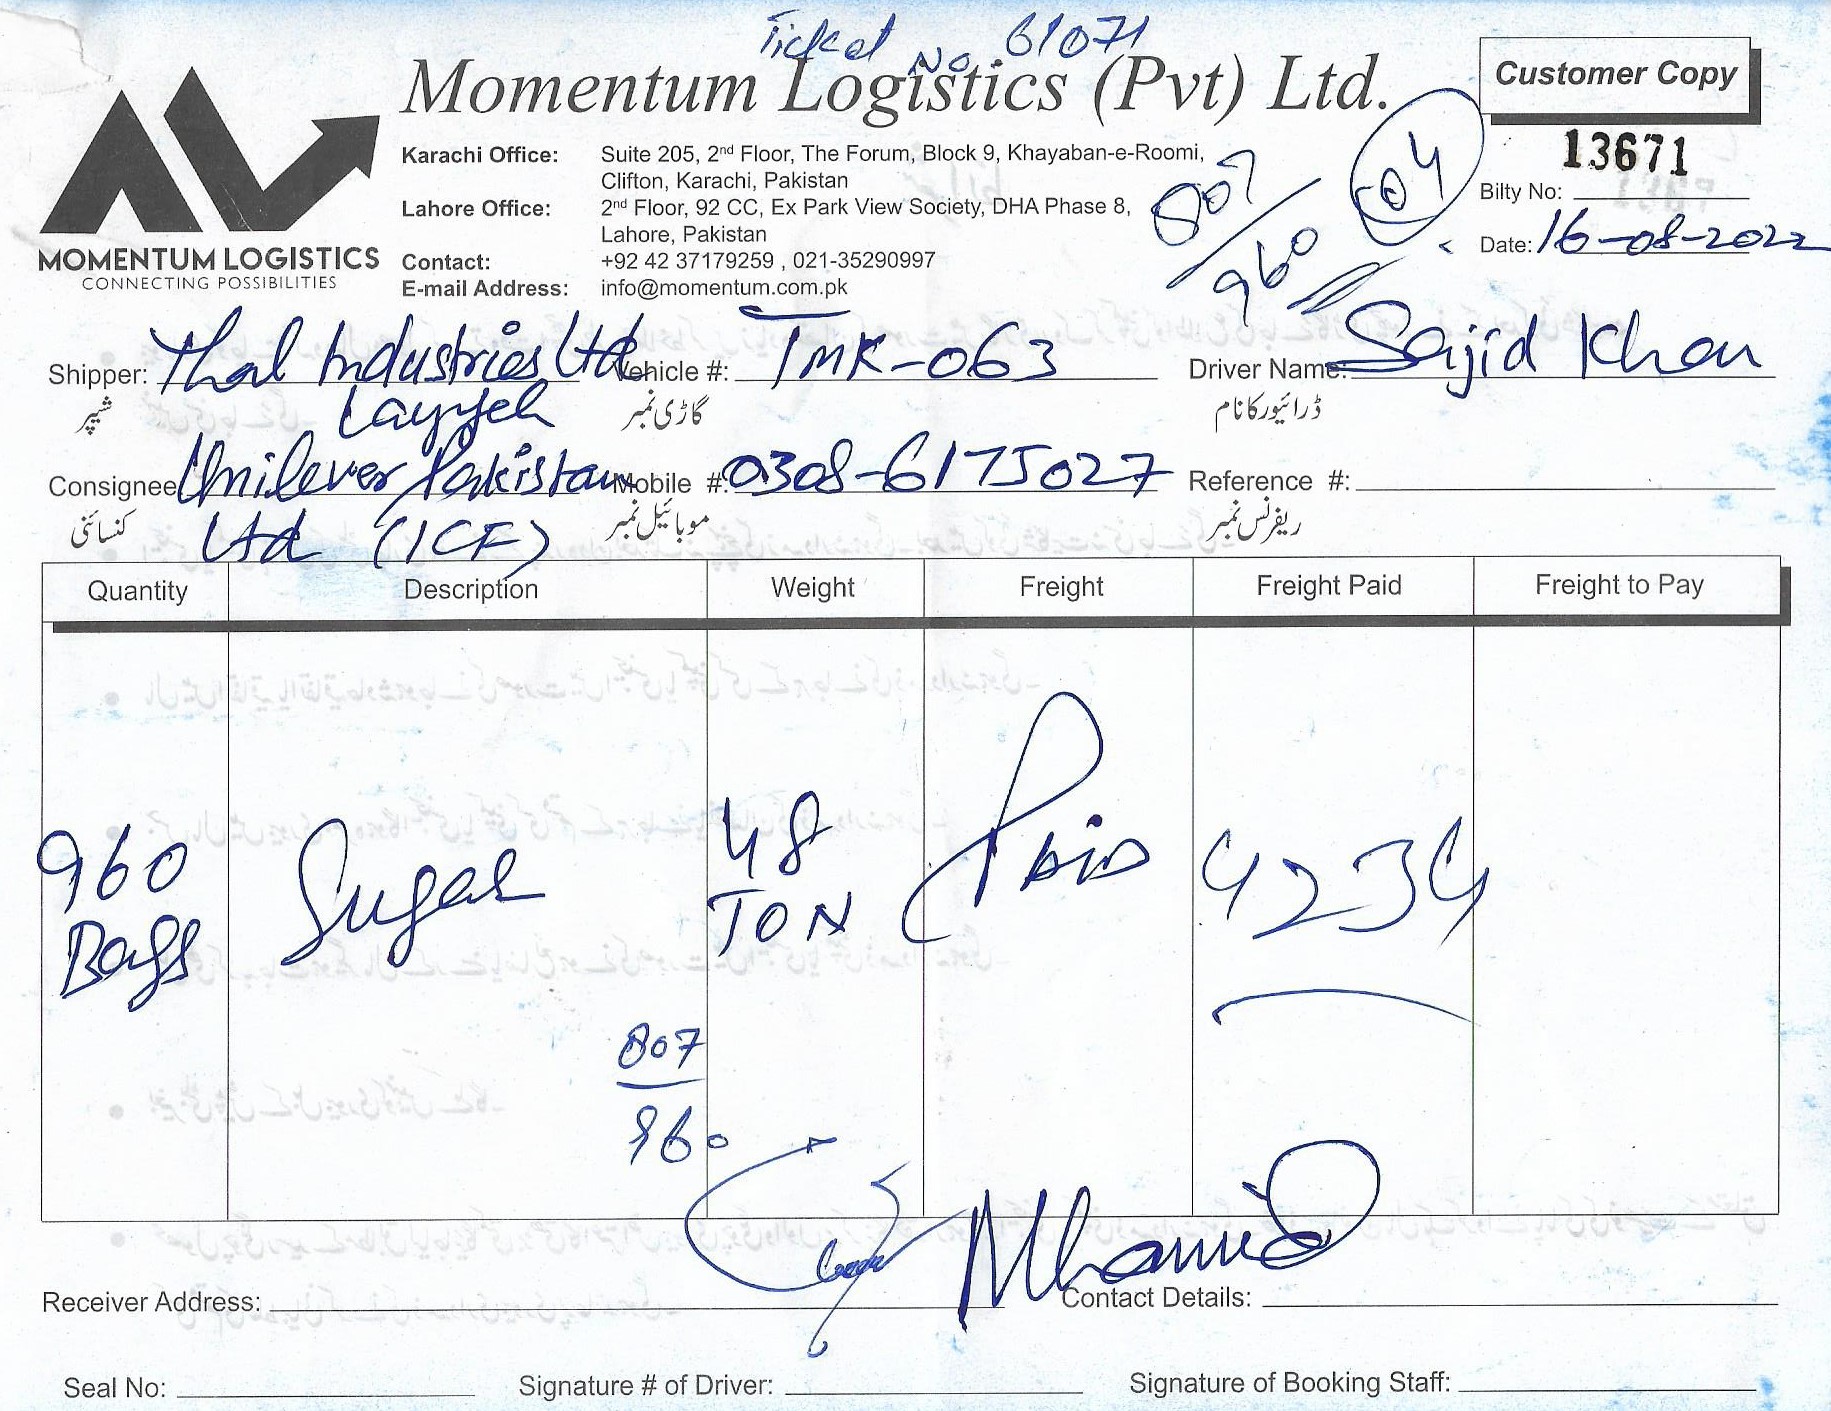 Ticket No. 61071
Momentum Logistics (Pvt) Ltd.
Customer Copy
MOMENTUM LOGISTICS
CONNECTING POSSIBILITIES
Karachi Office: Suite 205, 2nd Floor, The Forum, Block 9, Khayaban-e-Roomi,
Clifton, Karachi, Pakistan
Lahore Office: 2nd Floor, 92 CC, Ex Park View Society, DHA Phase 8,
Lahore, Pakistan
Contact: +92 42 37179259 , 021-35290997
E-mail Address: info@momentum.com.pk
807/960
04
13671
Bilty No:
Date: 16-08-2022
Shipper: Thal Industries Ltd Vehicle #: TMK-063 Driver Name: Sajid Khan
شیپر Layyah گاڑی نمبر ڈرائیور کا نام
Consignee Unilever Pakistan Mobile #: 0308-6175027 Reference #:
کنسائنی Ltd (ICF) موبائیل نمبر ریفرنس نمبر
Quantity Description Weight Freight Freight Paid Freight to Pay
960 Bags Sugar 48 TON Paid 4234
807
960
Receiver Address: Contact Details:
Seal No: Signature # of Driver: Signature of Booking Staff: